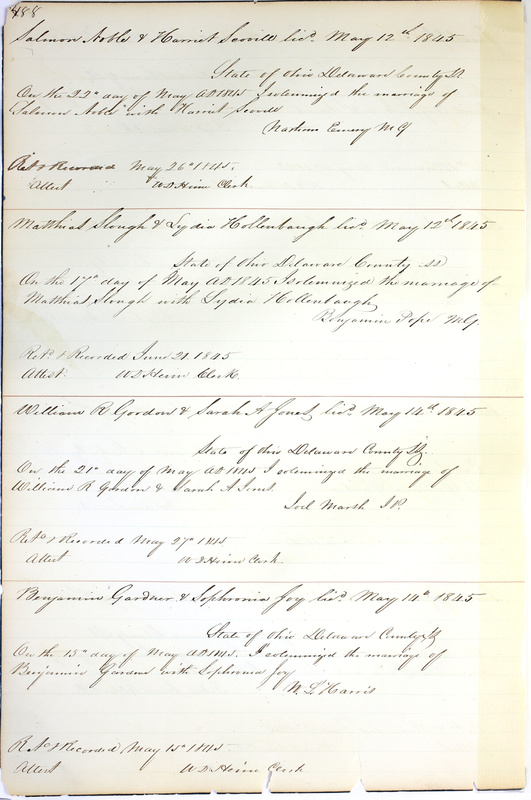 488
Salmon Noble & Harriet Scovill lic.d May 12th 1845
State of Ohio Delaware County SS
On the 22d day of May AD 1845 I solemnized the marriage of
Salmon Noble with Harriet Scovill
Emery MG
Ret.d & Recorded May 26th 1845.
Attest W D Heim Clerk
Matthias Slough & Lydia Hollenbaugh lic.d May 12th 1845
State of Ohio Delaware County SS
On the 17th day of May AD 1845 I solemnized the marriage of
Matthias Slough with Lydia Hollenbaugh
Benjamin Pope M.G.
Ret.d & Recorded June 21 1845
Attest. W D Heim Clerk.
William R Gordon & Sarah A Jones lic.d May 14th 1845
State of Ohio Delaware County SS.
On the 21st day of May AD 1845 I solemnized the marriage of
William R Gordon & Sarah A Jones.
Joel Marsh J.P.
Ret.d & Recorded May 27th 1845
Attest W D Heim Clerk.
Benjamin Gardner & Sophronia Joy lic.d May 14th 1845
State of Ohio Delaware County SS
On the 15th day of May AD 1845. I solemnized the marriage of
Benjamin Gardner with Sophronia Joy
W. L. Harris
Ret.d & Recorded May 15th 1845
Attest W D Heim Clerk